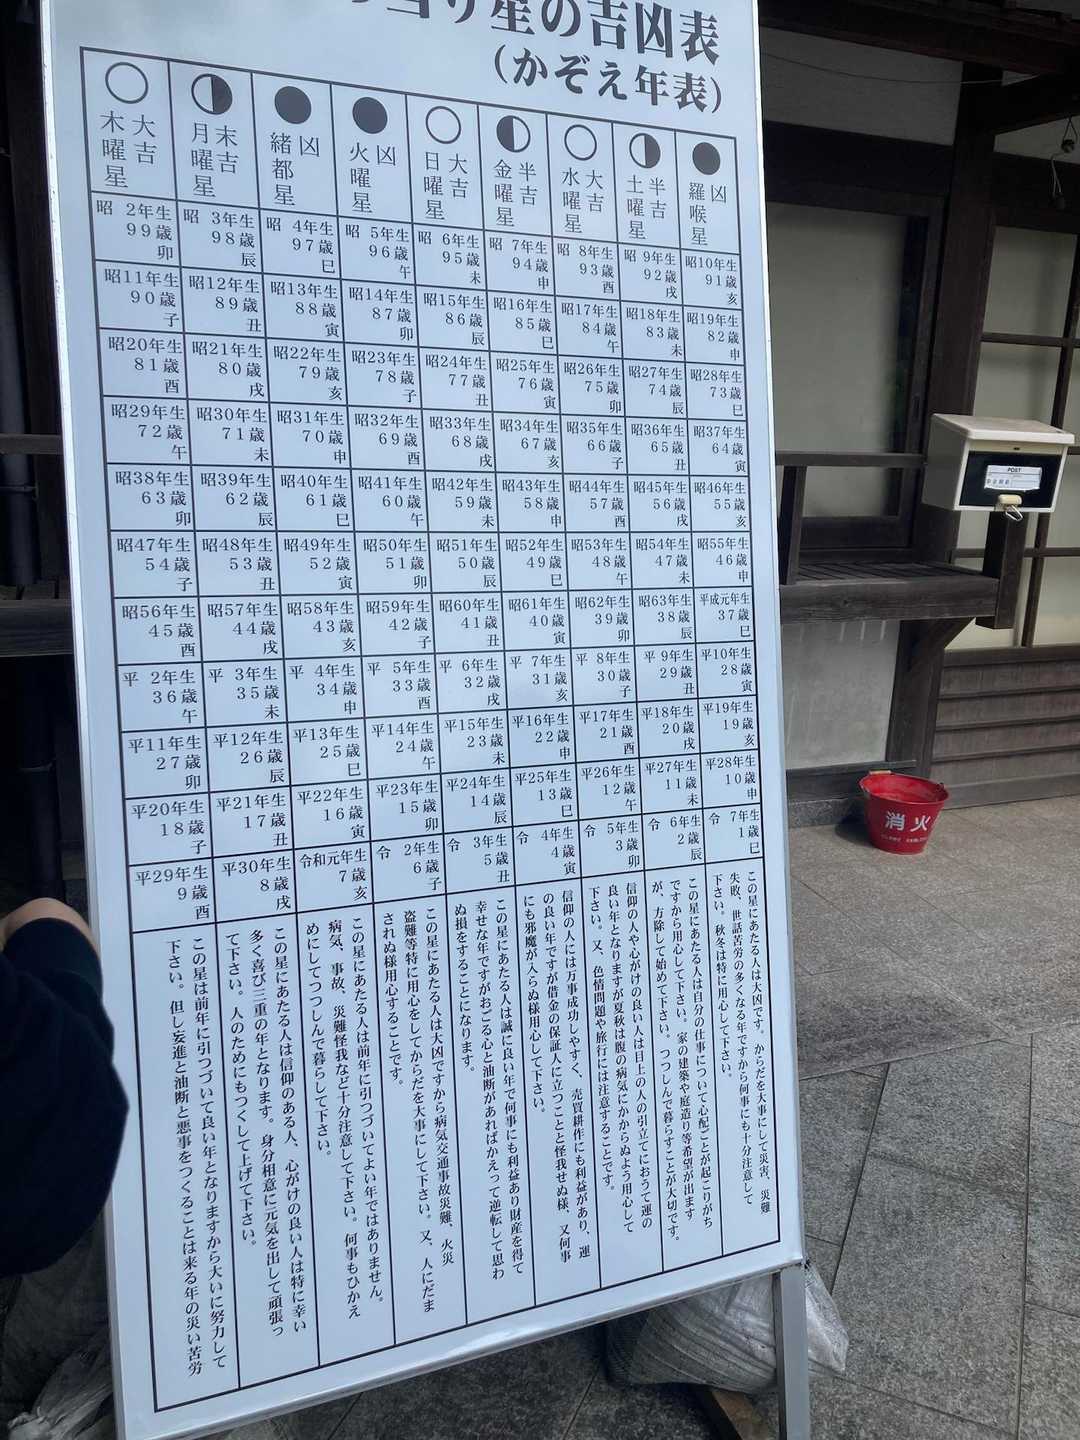 当り星の吉凶表
(かぞえ年表)
大吉 木曜星
末吉 月曜星
凶 緒都星
凶 火曜星
大吉 日曜星
半吉 金曜星
大吉 水曜星
半吉 土曜星
凶 羅睺星
昭 2年生 99歳 卯
昭 3年生 98歳 辰
昭 4年生 97歳 巳
昭 5年生 96歳 午
昭 6年生 95歳 未
昭 7年生 94歳 申
昭 8年生 93歳 酉
昭 9年生 92歳 戌
昭10年生 91歳 亥
昭11年生 90歳 子
昭12年生 89歳 丑
昭13年生 88歳 寅
昭14年生 87歳 卯
昭15年生 86歳 辰
昭16年生 85歳 巳
昭17年生 84歳 午
昭18年生 83歳 未
昭19年生 82歳 申
昭20年生 81歳 酉
昭21年生 80歳 戌
昭22年生 79歳 亥
昭23年生 78歳 子
昭24年生 77歳 丑
昭25年生 76歳 寅
昭26年生 75歳 卯
昭27年生 74歳 辰
昭28年生 73歳 巳
昭29年生 72歳 午
昭30年生 71歳 未
昭31年生 70歳 申
昭32年生 69歳 酉
昭33年生 68歳 戌
昭34年生 67歳 亥
昭35年生 66歳 子
昭36年生 65歳 丑
昭37年生 64歳 寅
昭38年生 63歳 卯
昭39年生 62歳 辰
昭40年生 61歳 巳
昭41年生 60歳 午
昭42年生 59歳 未
昭43年生 58歳 申
昭44年生 57歳 酉
昭45年生 56歳 戌
昭46年生 55歳 亥
昭47年生 54歳 子
昭48年生 53歳 丑
昭49年生 52歳 寅
昭50年生 51歳 卯
昭51年生 50歳 辰
昭52年生 49歳 巳
昭53年生 48歳 午
昭54年生 47歳 未
昭55年生 46歳 申
昭56年生 45歳 酉
昭57年生 44歳 戌
昭58年生 43歳 亥
昭59年生 42歳 子
昭60年生 41歳 丑
昭61年生 40歳 寅
昭62年生 39歳 卯
昭63年生 38歳 辰
平成元年生 37歳 巳
平 2年生 36歳 午
平 3年生 35歳 未
平 4年生 34歳 申
平 5年生 33歳 酉
平 6年生 32歳 戌
平 7年生 31歳 亥
平 8年生 30歳 子
平 9年生 29歳 丑
平10年生 28歳 寅
平11年生 27歳 卯
平12年生 26歳 辰
平13年生 25歳 巳
平14年生 24歳 午
平15年生 23歳 未
平16年生 22歳 申
平17年生 21歳 酉
平18年生 20歳 戌
平19年生 19歳 亥
平20年生 18歳 子
平21年生 17歳 丑
平22年生 16歳 寅
平23年生 15歳 卯
平24年生 14歳 辰
平25年生 13歳 巳
平26年生 12歳 午
平27年生 11歳 未
平28年生 10歳 申
平29年生 9歳 酉
平30年生 8歳 戌
令和元年生 7歳 亥
令 2年生 6歳 子
令 3年生 5歳 丑
令 4年生 4歳 寅
令 5年生 3歳 卯
令 6年生 2歳 辰
令 7年生 1歳 巳
この星にあたる人は大凶です。からだを大事にして災害、災難
失敗、世話苦労の多くなる年ですから何事にも十分注意して
下さい。秋冬は特に用心して下さい。
この星にあたる人は自分の仕事について心配ごとが起こりがち
ですから用心して下さい。家の建築や庭造り等希望が出ます
が、方除して始めて下さい。つつしんで暮らすことが大切です。
信仰の人や心がけの良い人は目上の人の引立てにおうて運の
良い年となりますが夏秋は腹の病気にかからぬよう用心して
下さい。又、色情問題や旅行には注意することです。
信仰の人には万事成功しやすく、売買耕作にも利益があり、運
の良い年ですが借金の保証人に立つことと怪我せぬ様、又何事
にも邪魔が入らぬ様用心して下さい。
この星にあたる人は誠に良い年で何事にも利益あり財産を得て
幸せな年ですがおごる心と油断があればかえって逆転して思わ
ぬ損をすることになります。
この星にあたる人は大凶ですから病気交通事故災難、火災
盗難等特に用心をしてからだを大事にして下さい。又、人にだま
されぬ様用心することです。
この星にあたる人は前年に引つづいてよい年ではありません。
病気、事故、災難怪我など十分注意して下さい。何事もひかえ
めにしてつつしんで暮らして下さい。
この星にあたる人は信仰のある人、心がけの良い人は特に幸い
多く喜び三重の年となります。身分相意に元気を出して頑張っ
て下さい。人のためにもつくして上げて下さい。
この星は前年に引つづいて良い年となりますから大いに努力して
下さい。但し妄進と油断と悪事をつくることは来る年の災い苦労
POST
消火